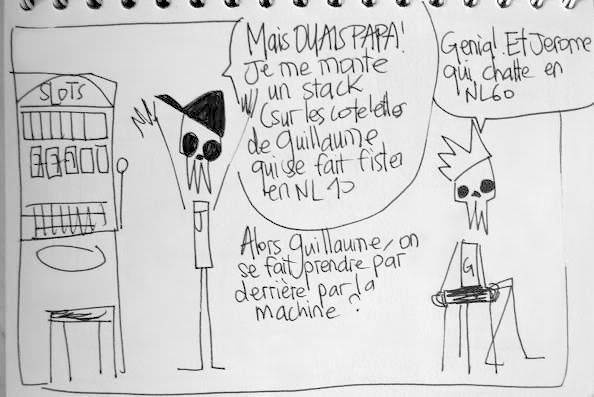 SLOTS
77777
J
Mais OUAIS PAPA!
Je me monte
un stack
(sur les cotelettes
de Guillaume
qui se fait fister
en NL 10
Genial Et Jerome
qui chatte en
NL60
G
Alors Guillaume, on
se fait prendre par
derrière par la
machine?